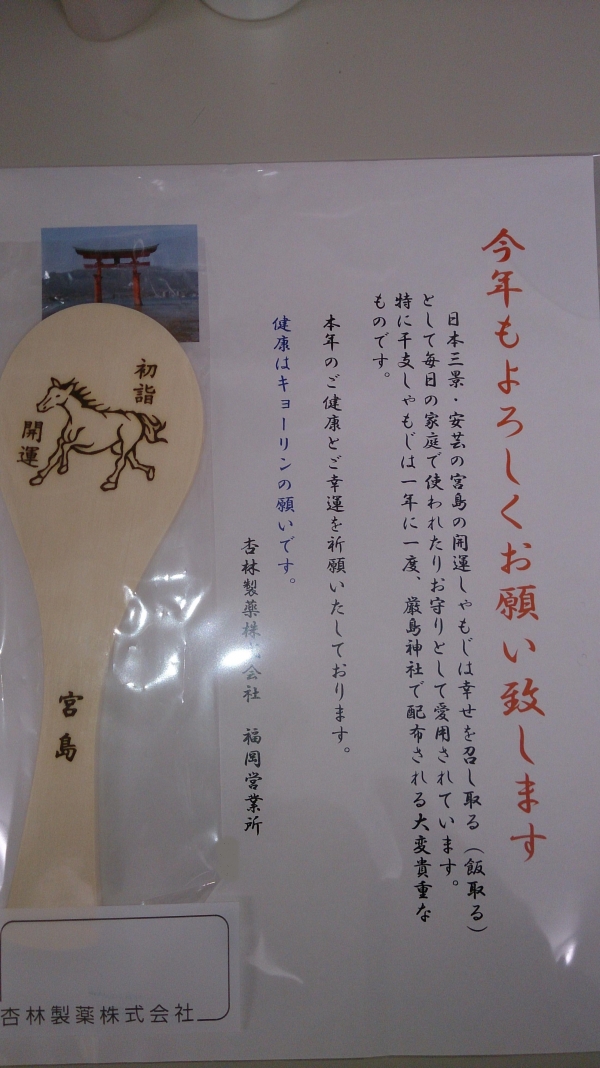 今年もよろしくお願い致します
日本三景・安芸の宮島の開運しゃもじは幸せを召し取る（飯取る）
として毎日の家庭で使われたりお守りとして愛用されています。
特に干支しゃもじは一年に一度、厳島神社で配布される大変貴重な
ものです。
本年のご健康とご幸運を祈願いたしております。
健康はキョーリンの願いです。
杏林製薬株式会社 福岡営業所
初詣
開運
宮島
杏林製薬株式会社